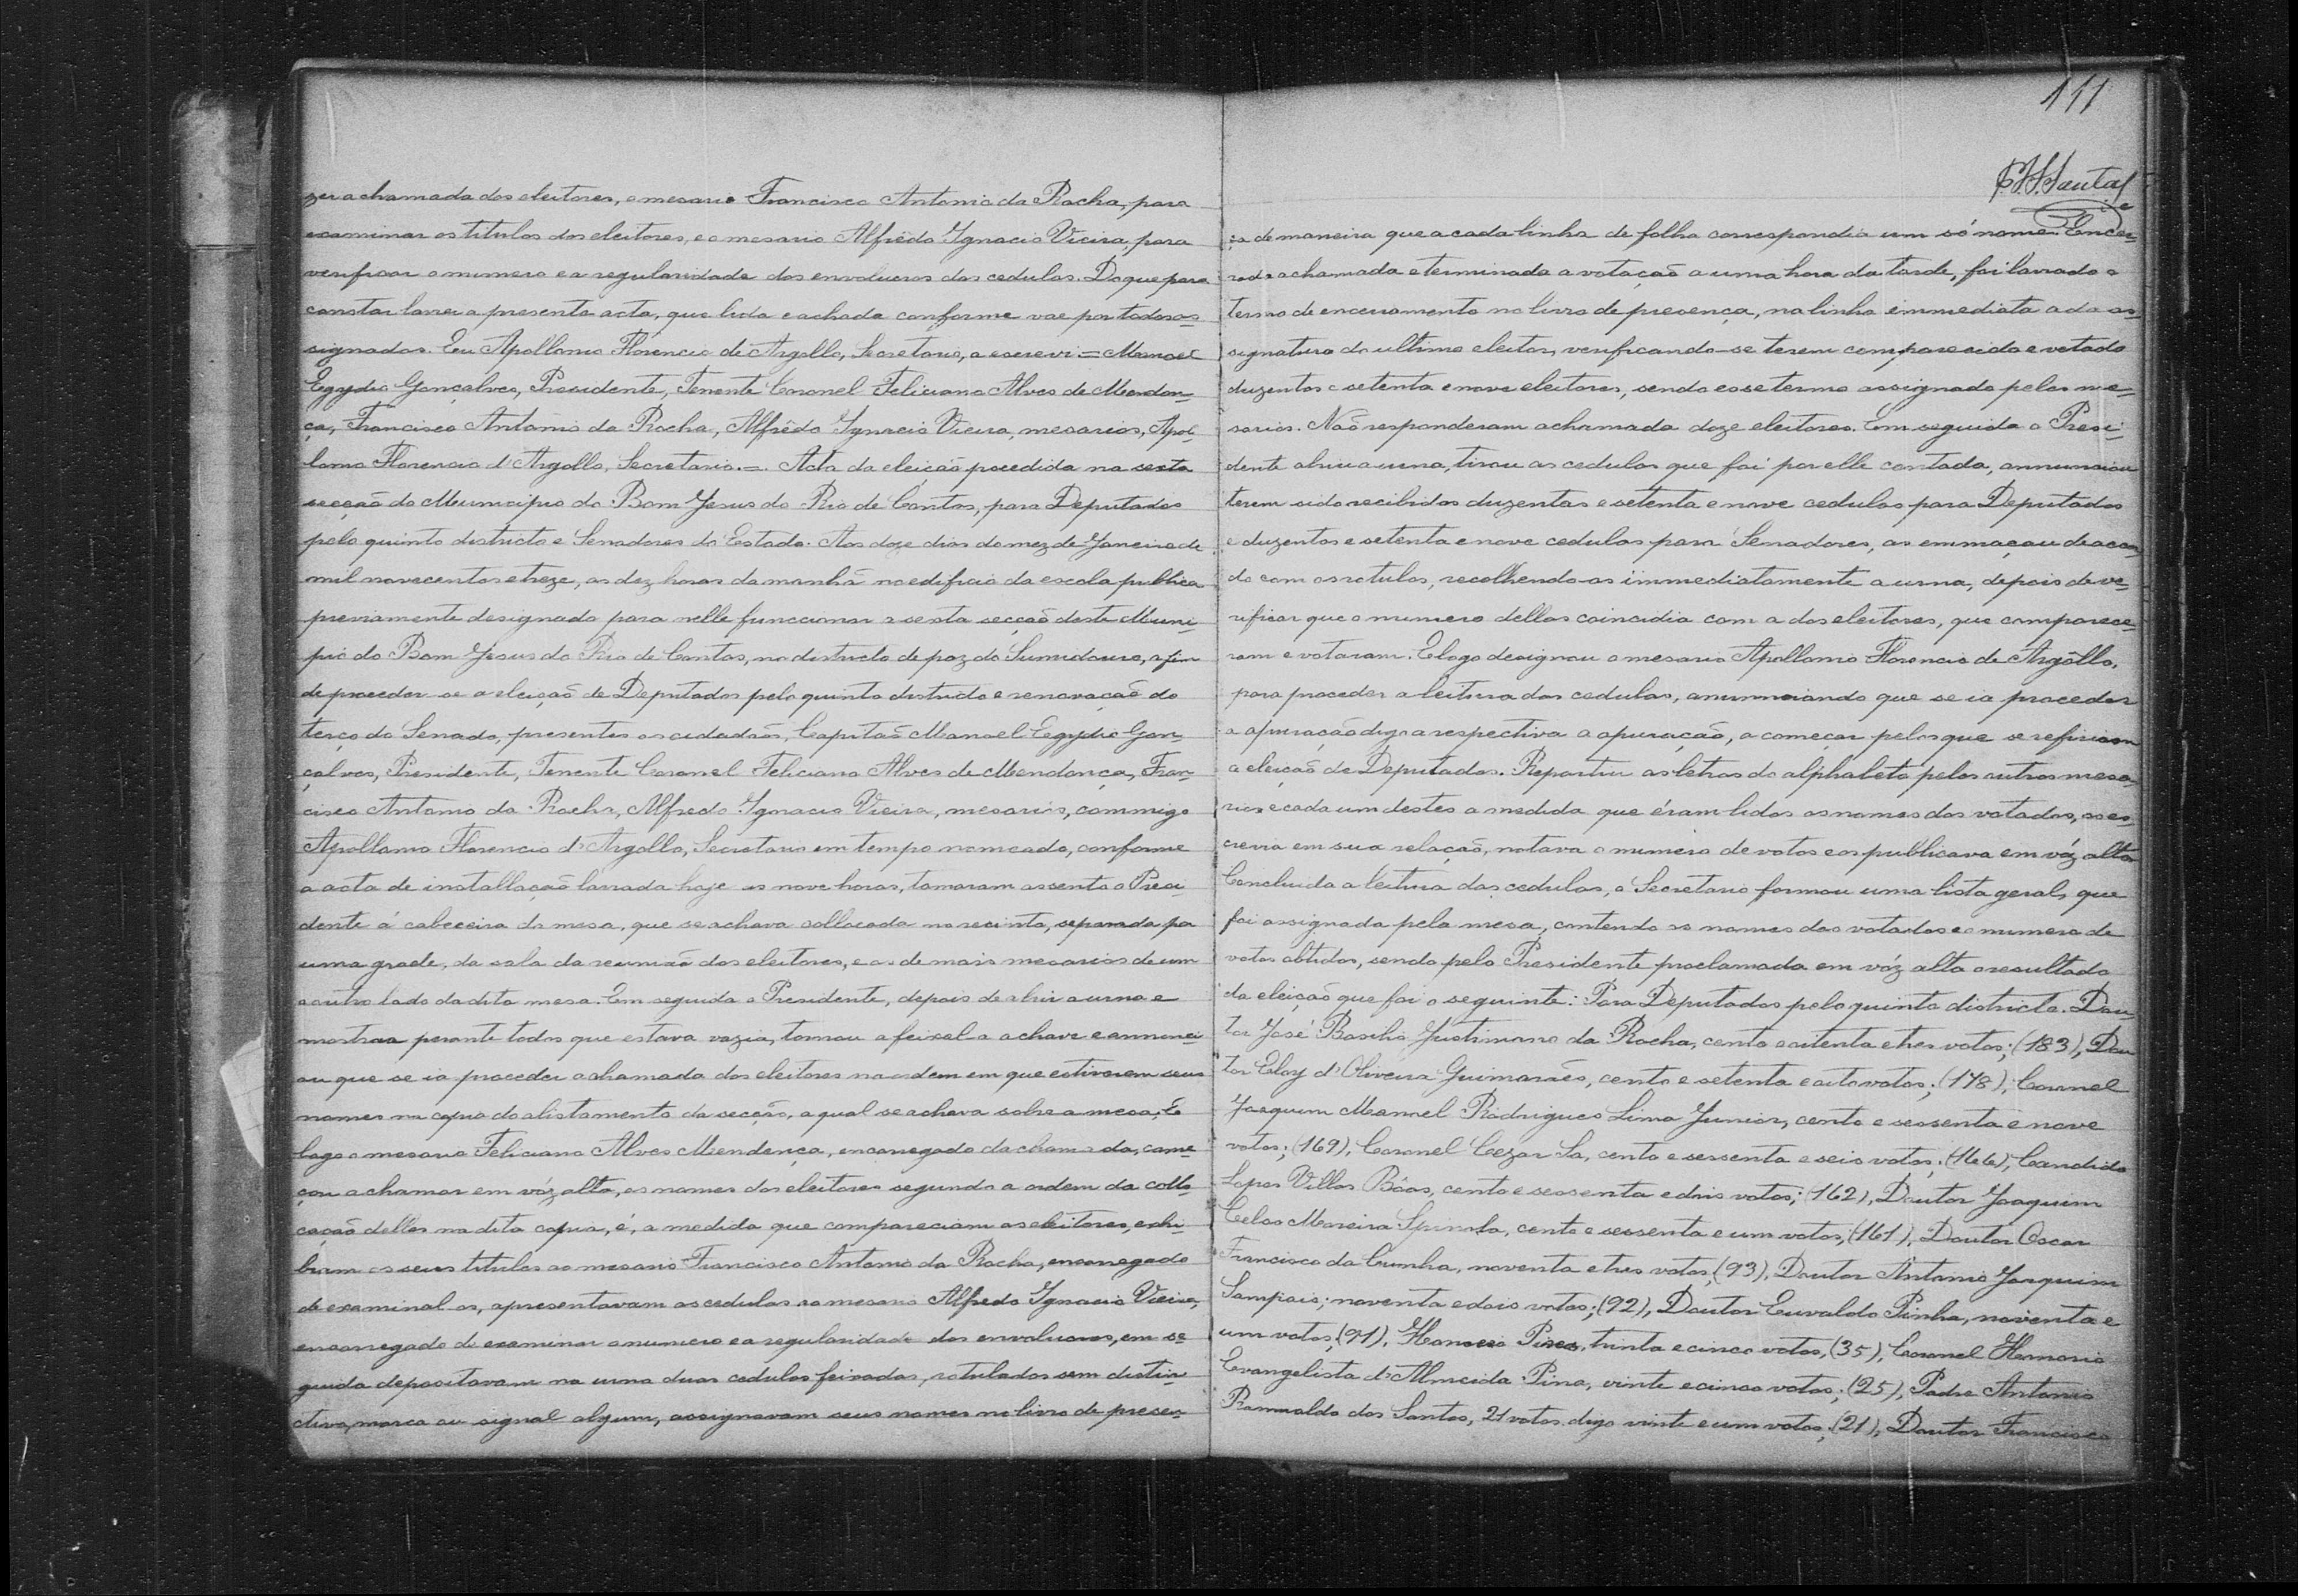 zer a chamada dos eleitores, o mesario Francisco Antonio da Rocha, para
examinar os titulos dos eleitores, e o mesario Alfrêdo Ignacio Vieira, para
verificar o numero e a regularidade dos envolucros das cedulas. Do que para
constar lavrei a presente acta, que lida e achada conforme vae por todos as-
signados. Eu Apollonio Florencio de Argollo, Secretario, a escrevi = Manoel
Egydio Gonçalves, Presidente, Tenente Coronel Feliciano Alves de Mendon-
ça, Francisco Antonio da Rocha, Alfrêdo Ignacio Vieira, mesarios, Apol-
lonio Florencio d'Argollo, Secretario. = Acta da eleição procedida na sexta
secção do Municipio do Bom Jesus do Rio de Contas, para Deputados
pelo quinto districto e Senadores do Estado. Aos doze dias do mez de Janeiro de
mil novecentos e treze, as dez horas da manhã no edificio da escola publica
previamente designado para nelle funccionar a sexta secção deste Muni-
pio do Bom Jesus do Rio de Contas, no districto de paz do Sumidouro, afim
de proceder-se a eleição de Deputados pelo quinto districto e renovação do
terço do Senado, presentes os cidadãos, Capitão Manoel Egydio Gon-
çalves, Presidente, Tenente Coronel Feliciano Alves de Mendonça, Fran-
cisco Antonio da Rocha, Alfredo Ignacio Vieira, mesarios, commigo
Apollonio Florencio d'Argollo, Secretario em tempo nomeado, conforme
a acta de installação lavrada hoje as nove horas, tomaram assento o Presi-
dente á cabeceira da mesa, que se achava collocada no recinto, separada por
uma grade, da sala da reunião dos eleitores, e os de mais mesarios de um
a outro lado da dita mesa. Em seguida o Presidente, depois de abrir a urna e
mostrar perante todos que estava vazia, tornou a feixal-a a chave e annunci-
ou que se ia proceder a chamada dos eleitores na ordem em que estiverem seus
nomes na copia do alistamento da secção, a qual se achava sobre a mesa. E
logo o mesario Feliciano Alves Mendonça, encarregado da chamada, come-
çou a chamar em vóz alta, os nomes dos eleitores segundo a ordem da collo-
cação delles na dita copia, é, a medida que compareciam os eleitores, exhi-
biram os seus titulos ao mesario Francisco Antonio da Rocha, encarregado
de examinal-os, apresentavam as cedulas ao mesario Alfredo Ignacio Vieira,
encarregado de examinar o numero e a regularidade dos envolucros, em se-
guida depositavam na urna duas cedulas feixadas, rotulados sem distin-
ctivo, marca ou signal algum, assignavam seus nomes no livro de presen-
111
ça de maneira que a cada linha de folha correspondia um só nome. Encer-
rada a chamada e terminada a votação a uma hora da tarde, foi lavrado o
termo de encerramento no livro de presença, na linha immediata a da as-
signatura do ultimo eleitor, verificando-se terem comparecido e votado
duzentos e setenta e nove eleitores, sendo esse termo assignado pelos me-
sarios. Não responderam a chamada doze eleitores. Em seguida o Presi-
dente abriu a urna, tirou as cedulas que foi por elle contada, annunciou
terem sido recibidos duzentas e setenta e nove cedulas para Deputados
e duzentos e setenta e nove cedulas para Senadores, as emmaçou de accor-
do com os rotulos, recolhendo-as immediatamente a urna, depois de ve-
rificar que o numero dellas coincidia com a dos eleitores, que comparece-
ram e votaram. E logo designou o mesario Apollonio Florencio de Argôllo,
para proceder a leitura das cedulas, annunciando que se ia proceder
a apuração digo a respectiva a apuração, a começar pelos que se refiriam
a eleição de Deputados. Repartiu as letras do alphabeto pelos outros mesa-
rios e cada um destes a medida que éram lidos os nomes dos votados, os es-
crevia em sua relação, notava o numero de votos e os publicava em vóz alta
Concluida a leitura das cedulas, o Secretario formou uma lista geral, que
foi assignada pela mesa, contendo os nomes dos votados e o numero de
votos obtidos, sendo pelo Presidente proclamada em vóz alta o resultado
da eleição que foi o seguinte: Para Deputados pelo quinto districto. Dou-
tor José Basilio Justiniano da Rocha, cento e oitenta e tres votos; (183), Dou-
tor Eloy d'Oliveira Guimarães, cento e setenta e oito votos; (178), Coronel
Joaquim Manoel Rodrigues Lima Junior, cento e sessenta e nove
votos; (169), Coronel Cezar Sa, cento e sessenta e seis votos; (166), Candido
Lopes Villas Bôas, cento e sessenta e dois votos; (162), Doutor Joaquim
Celso Moreira Spinola, cento e sessenta e um votos; (161), Doutor Oscar
Francisco da Cunha, noventa e tres votos, (93), Doutor Antonio Joaquim
Sampaio; noventa e dois votos; (92), Doutor Euvaldo Pinho, noventa e
um votos, (91), Pires, trinta e cinco votos, (35), Coronel Honorio
Evangelista d'Almeida Pina, vinte e cinco votos; (25), Padre Antonio
Romualdo dos Santos, 21 votos digo vinte e um votos; (21), Doutor Francisco